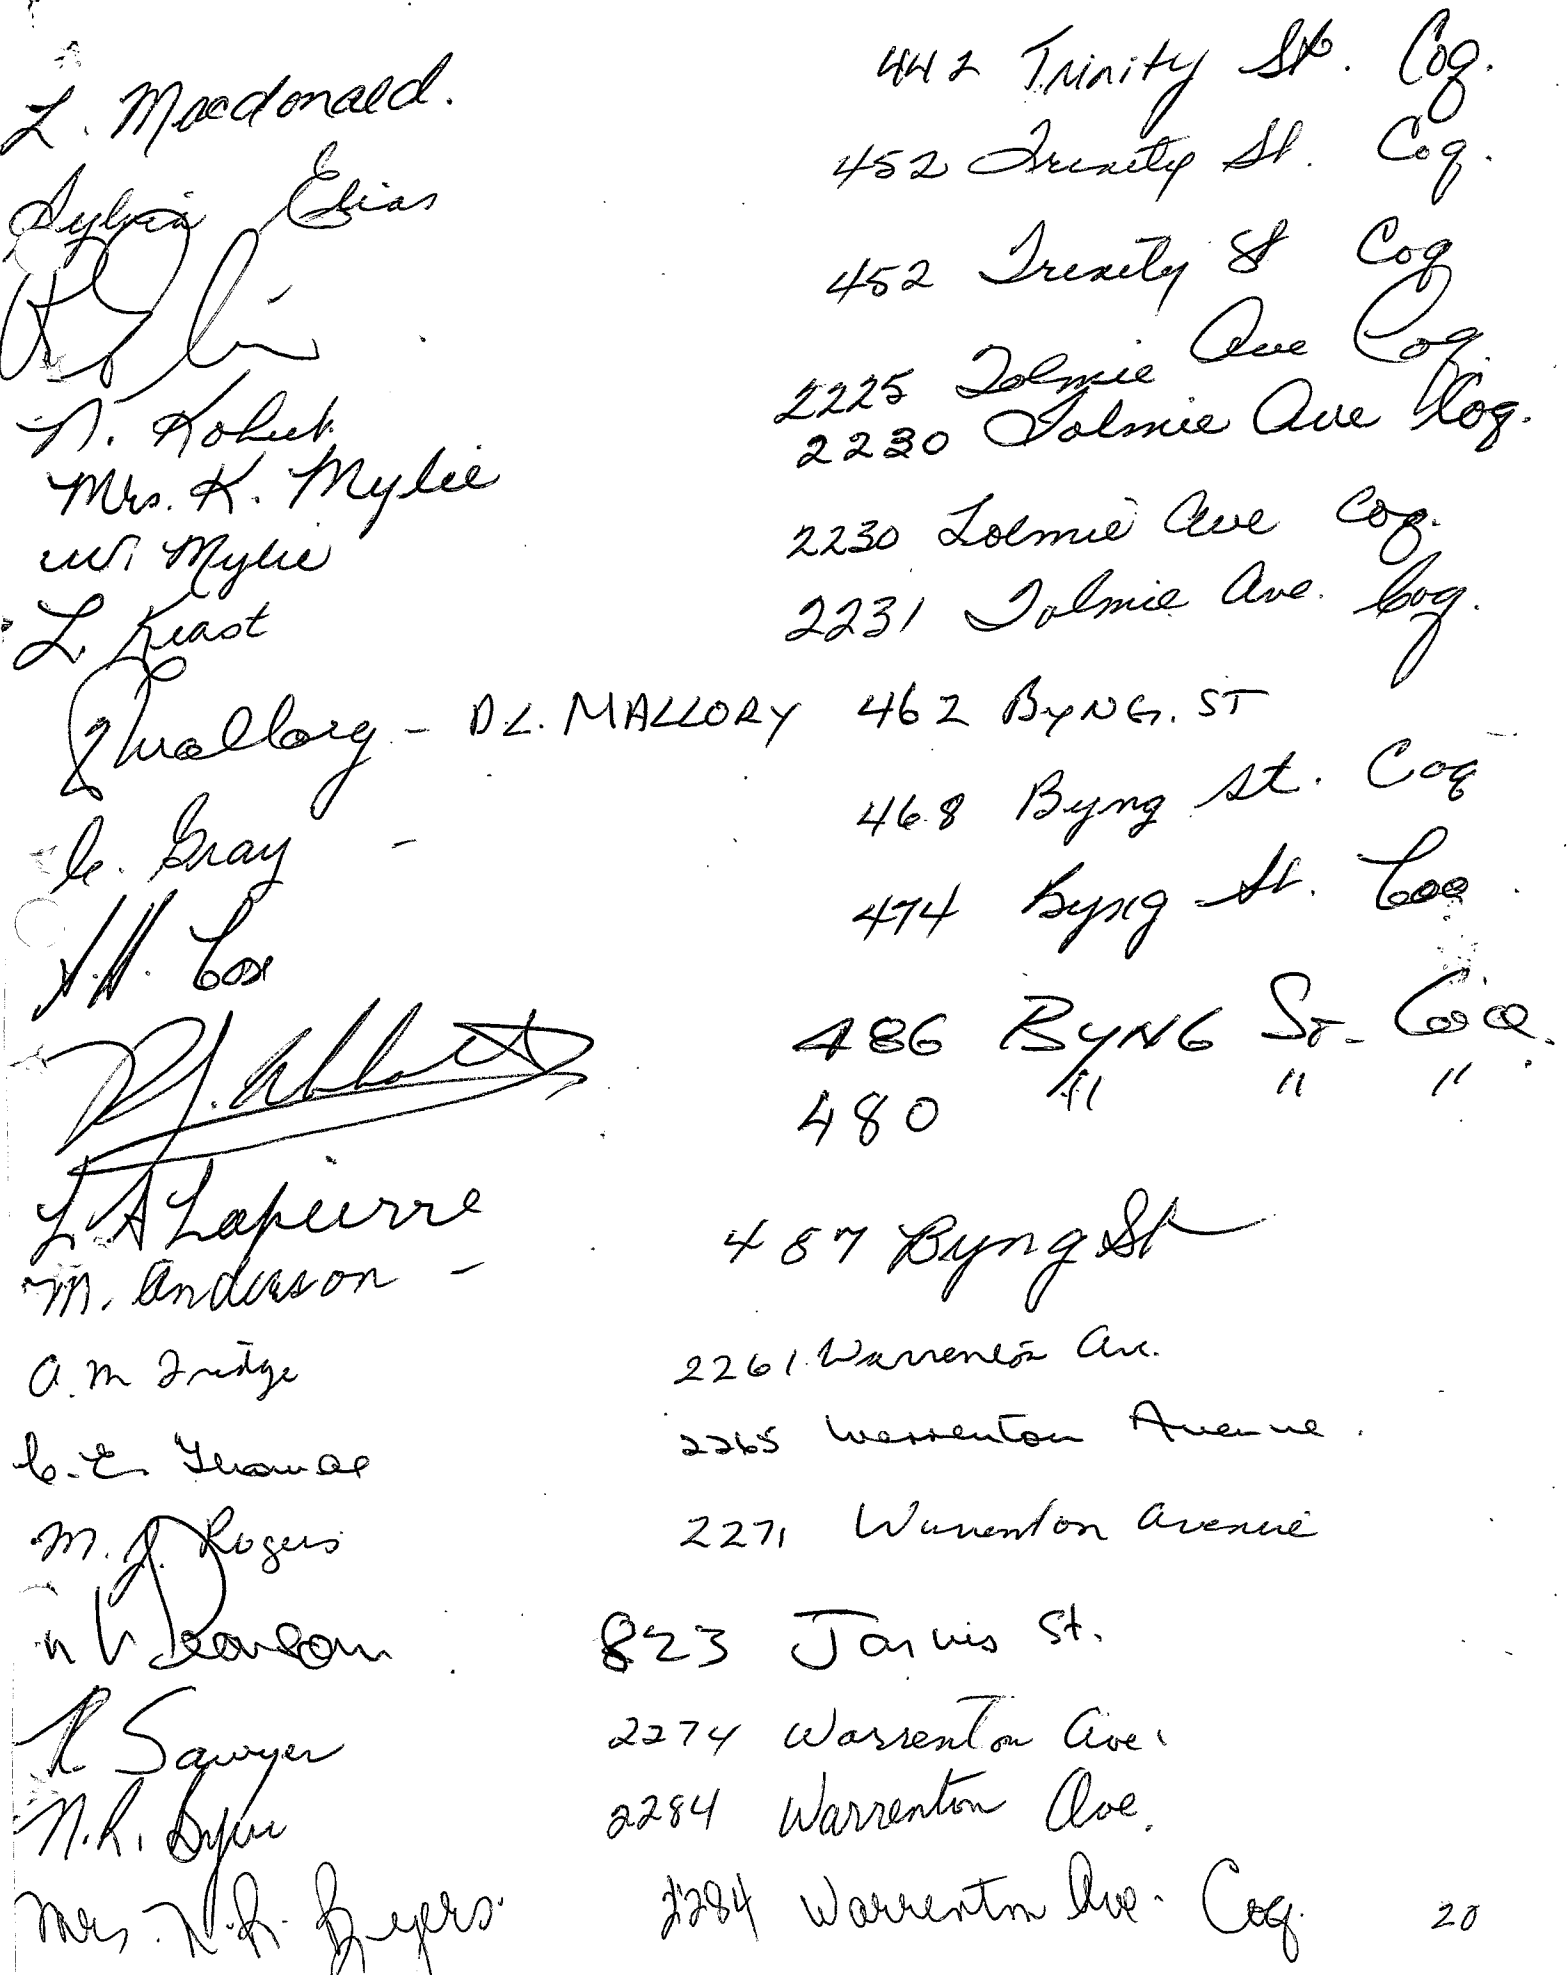 L. Macdonald. 442 Trinity St. Coq.
Sylvia Elias 452 Trinity St. Coq.
452 Trinity St Coq
N. 2225 Tolmie Ave Coq.
Mrs. K. Mylie 2230 Tolmie Ave Coq.
W. Mylie 2230 Tolmie Ave Coq.
L. Keast 2231 Tolmie Ave. Coq.
Mallory - D.L. MALLORY 462 BYNG. ST
C. Gray - 468 Byng St. Coq
Cox 474 Byng St. Coq
Abbott 486 BYNG ST. COQ.
L. A Lapierre 480 " " "
M. Anderson - 487 Byng St
A. M 2261 Warrenton Ave.
C. E. Thomas 2265 Warrenton Avenue.
M. J. Rogers 2271 Warrenton Avenue
Pearson 823 Jarvis St.
R Sawyer 2274 Warrenton Ave.
N. R. Byers 2284 Warrenton Ave.
Mrs. N. R. Byers. 2284 Warrenton Ave. Coq. 20